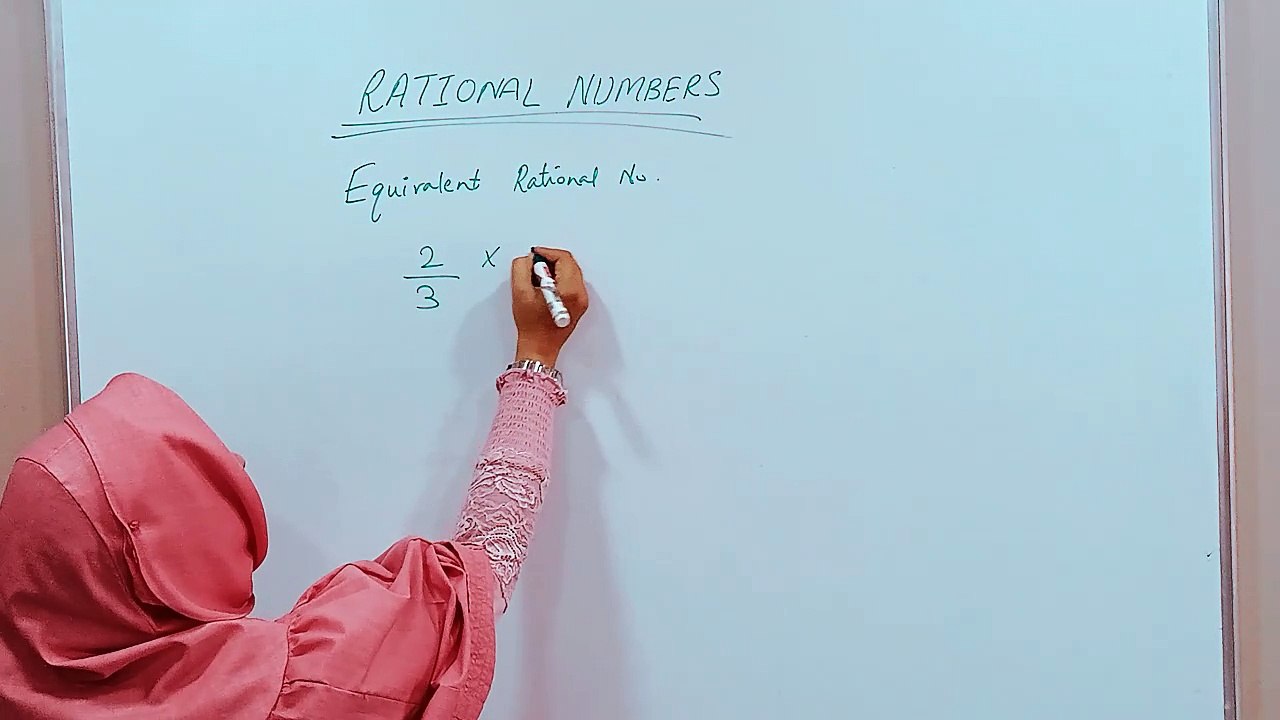 RATIONAL NUMBERS
Equivalent Rational No.
2 ×
3